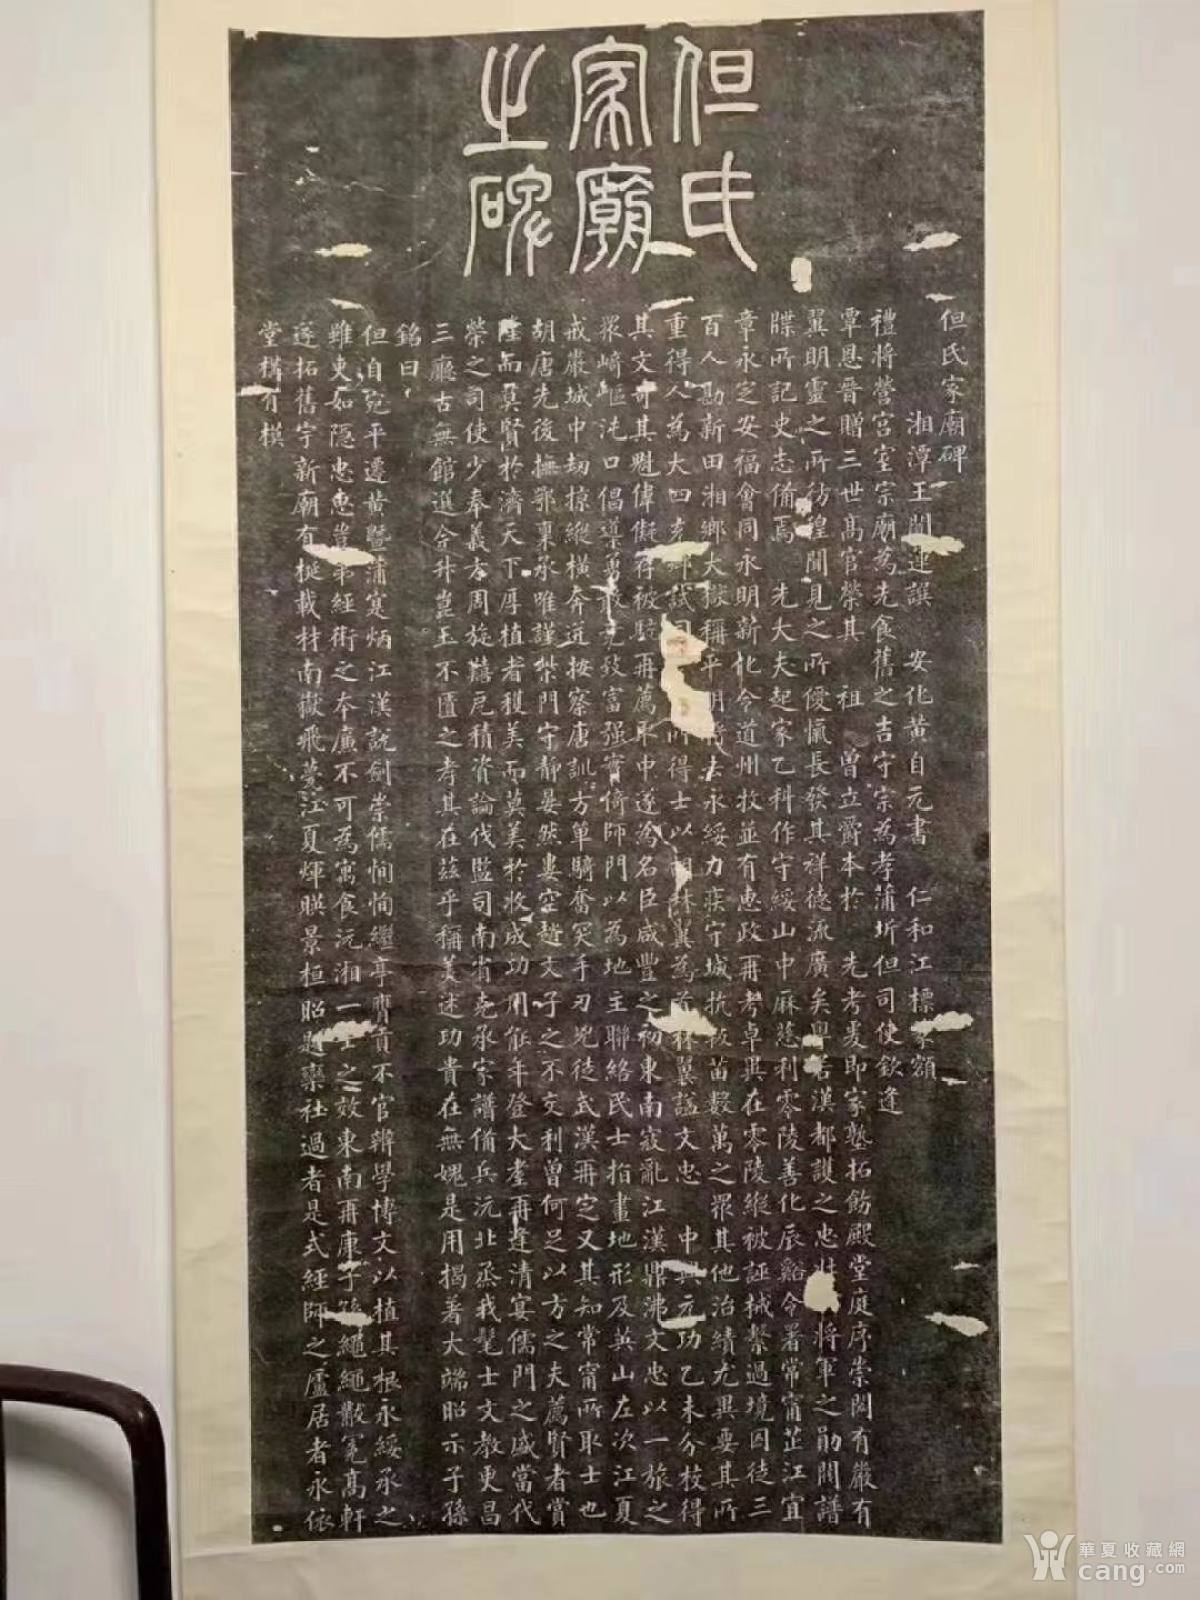 但氏
家廟
之碑
但氏家廟碑
湘潭王闓運譔 安化黃自元書 仁和江標篆額
禮將營宮室宗廟為先食舊之吉守宗為孝蒲圻但司使欽逢
覃恩晉贈三世高官榮其 祖 曾立爵本於 先考爰即家塾拓飭殿堂庭序崇閎有嚴有
翼明靈之所彷徨聞見之所優愾長發其祥德流廣矣粵若漢都護之忠壯 將軍之勛開譜
牒所記史志備焉 先大夫起家乙科作守綏山中麻慈利零陵善化辰谿令署常甯芷江宜
章永定安福會同永明新化令道州牧並有惠政再考卓異在零陵縱被誣械繫過境囚徒三
百人勘新田湘鄉大獄稱平明 去永綏力疾守城抗叛苗數萬之眾其他治績尤異要其所
重得人為大四充鄉試同 所得士以胡林翼為首林翼諡文忠 中興元功乙未分校得
其文奇其魁偉儗存被駁再薦取中遂為名臣咸豐之初東南寇亂江漢鼎沸文忠以一旅之
眾崎嶇沌口倡導勇敢克致富强實倚師門以為地主聯絡民士指畫地形及英山左次江夏
戒嚴城中劫掠縱橫奔迸按察唐訓方單騎奮 手刃兇徒武漢再定又其知常甯所取士也
胡唐先後撫鄂稟承唯謹棨門守靜晏然婁空趙文子之不交利曾何足以方之夫薦賢者賞
隆而莫賢於濟天下厚植者穫美而莫美於收成功用能年登大耋再逢清宴儒門之盛當代
榮之司使少奉義方周旋囏卮積資論伐監司南省克承宗譜備兵沅北烝我髦士文教更昌
三廳古無館選僉升崑玉不匱之孝其在茲乎稱美述功貴在無媿是用揭著大端昭示子孫
銘曰
但自宛平遷黃暨蒲寔炳江漢說劍崇儒恂恂繼亭膺貢不官辨學博文以植其根永綏承之
雖吏如隱忠惠豈弟經術之本廉不可為寓食沅湘一 之效東南再康子孫繩繩黻冕高軒
遂拓舊宇新廟有梴載材南嶽飛甍江夏煇暎景桓昭 欒社過者是式經師之廬居者永依
堂構有模
華夏收藏網
cang.com